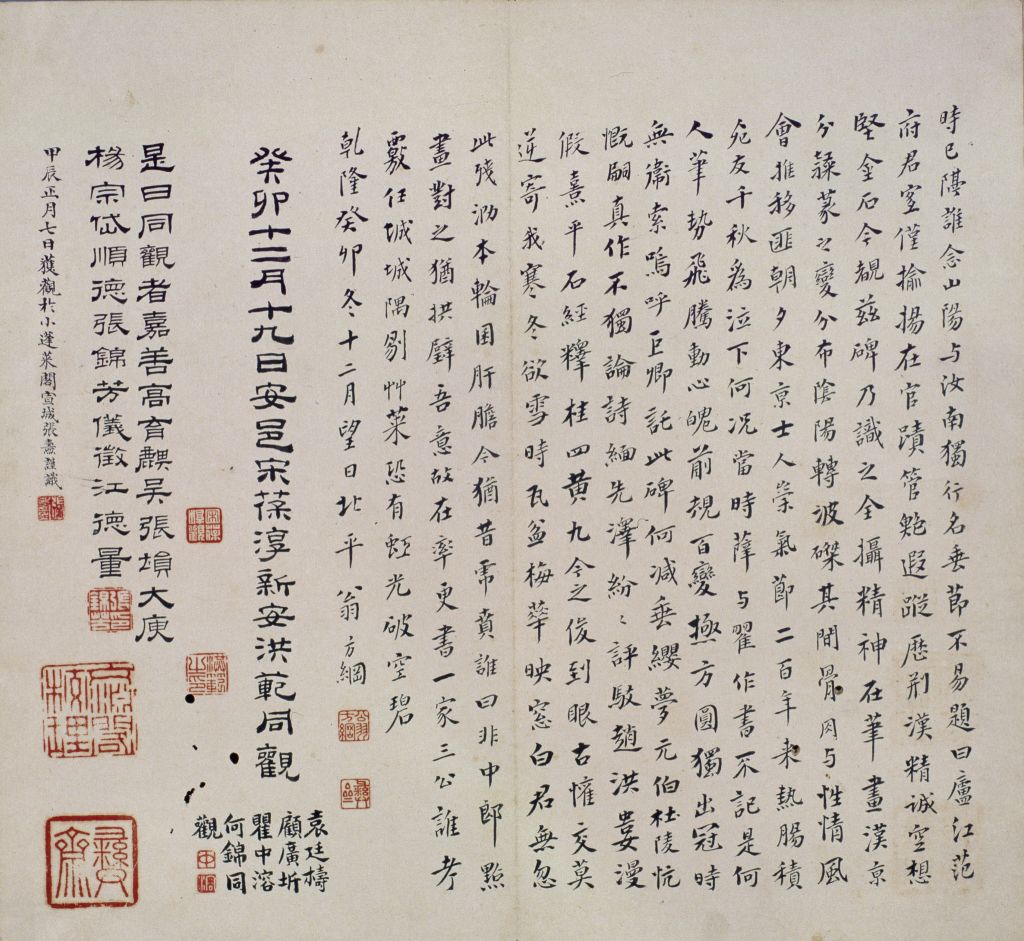 時已隔誰念山陽与汝南獨行名垂節不易題曰廬江范
府君室僅揄揚在官蹟管鮑遐蹤歷荊漢精誠空想
堅金石今覩茲碑乃識之全攝精神在筆畫漢京
分隸篆之變分布陰陽轉波磔其間骨肉与性情風
會推移匪朝夕東京士人崇氣節二百年来熱腸積
死友千秋為泣下何况當時薛与翟作書不記是何
人筆勢飛騰動心魄前規百變極方圓獨出冠時
無衛索嗚呼巨卿託此碑何減垂纓夢元伯杜陵忼
慨嗣真作不獨論詩緬先澤紛〻評駁趙洪婁漫
假熹平石經釋桂四黄九今之俊到眼古懽交莫
逆寄我寒冬欲雪時瓦盆梅華映窓白君無忽
此殘泐本輪囷肝膽今猶昔虎賁誰曰非中郎點
畫對之猶拱璧吾意故在率更書一家三公誰考
覈任城城隅剔艸萊恐有虹光破空碧
乾隆癸卯冬十二月望日北平翁方綱
癸卯十二月十九日安邑宋葆淳新安洪範同觀
袁廷檮
顧廣圻
瞿中溶
何錦同
觀
是日同觀者嘉善高育麒吴張塤大庾
楊宗岱順德張錦芳儀徵江德量
甲辰正月七日獲觀於小蓬萊閣宣城張燾謹識